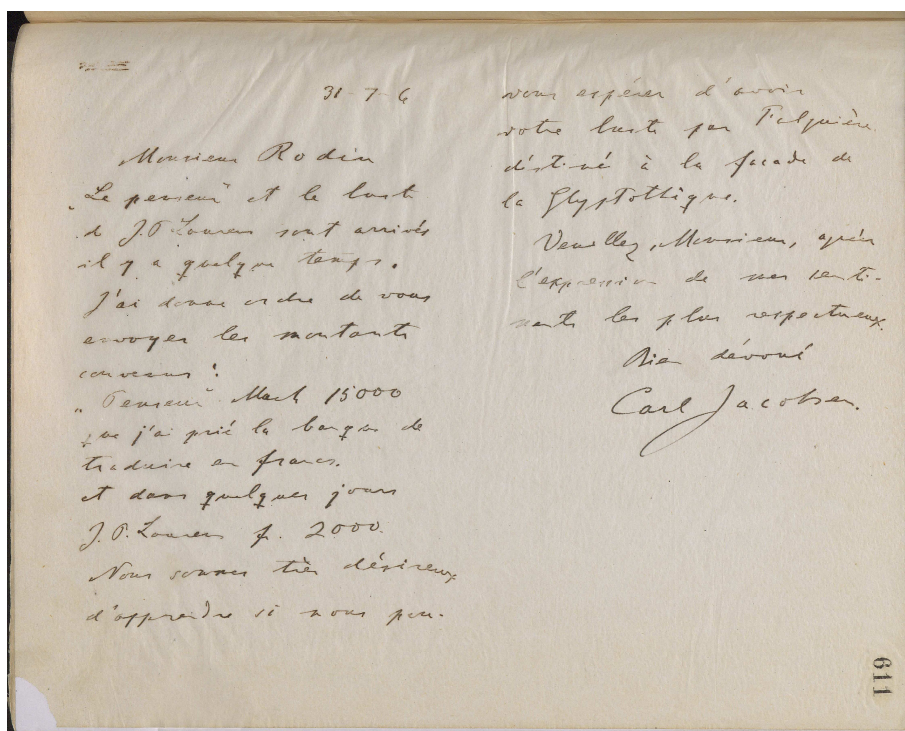 31-7-6
Monsieur Rodin
„Le penseur" et le buste
de J.P. Laurens sont arrivés
il y a quelque temps.
J'ai donné ordre de vous
envoyer les montants
convenus:
„Penseur" Mark 15000
que j'ai prié la banque de
traduire en francs.
et dans quelques jours
J.P. Laurens f. 2000
Nous sommes très désireux
d'apprendre si nous pou-
vons espérer d'avoir
votre buste par Falguière
déstiné à la façade de
la Glyptothèque.
Veuillez, Monsieur, agréer
l'expression de mes senti-
ments les plus respectueux.
Bien dévoué
Carl Jacobsen.
611